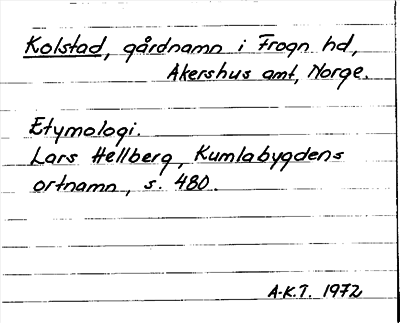 Kolstad, gårdnamn i Frogn hd,
Akershus amt, Norge.
Etymologi.
Lars Hellberg, Kumlabygdens
ortnamn, s. 480.
A-K.T. 1972